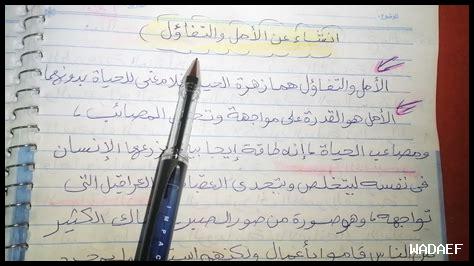 الموضوع:
(انشاء عن الأمل والتفاؤل)
الأمل والتفاؤل هما زهرة الحياة فلا معنى للحياة بدونهما
الأمل هو القدرة على مواجهة المصائب ،
ومصاعب الحياة ، إنه طاقة إيجابية يزرعها الإنسان
في نفسه ليتخلص ويتحدى العقبات العراقيل التي
تواجهه ، وهو صورة من صور الصبر هناك الكثير
من الناس قاموا بأعمال ولكنهم
WADAEF
IMPACT